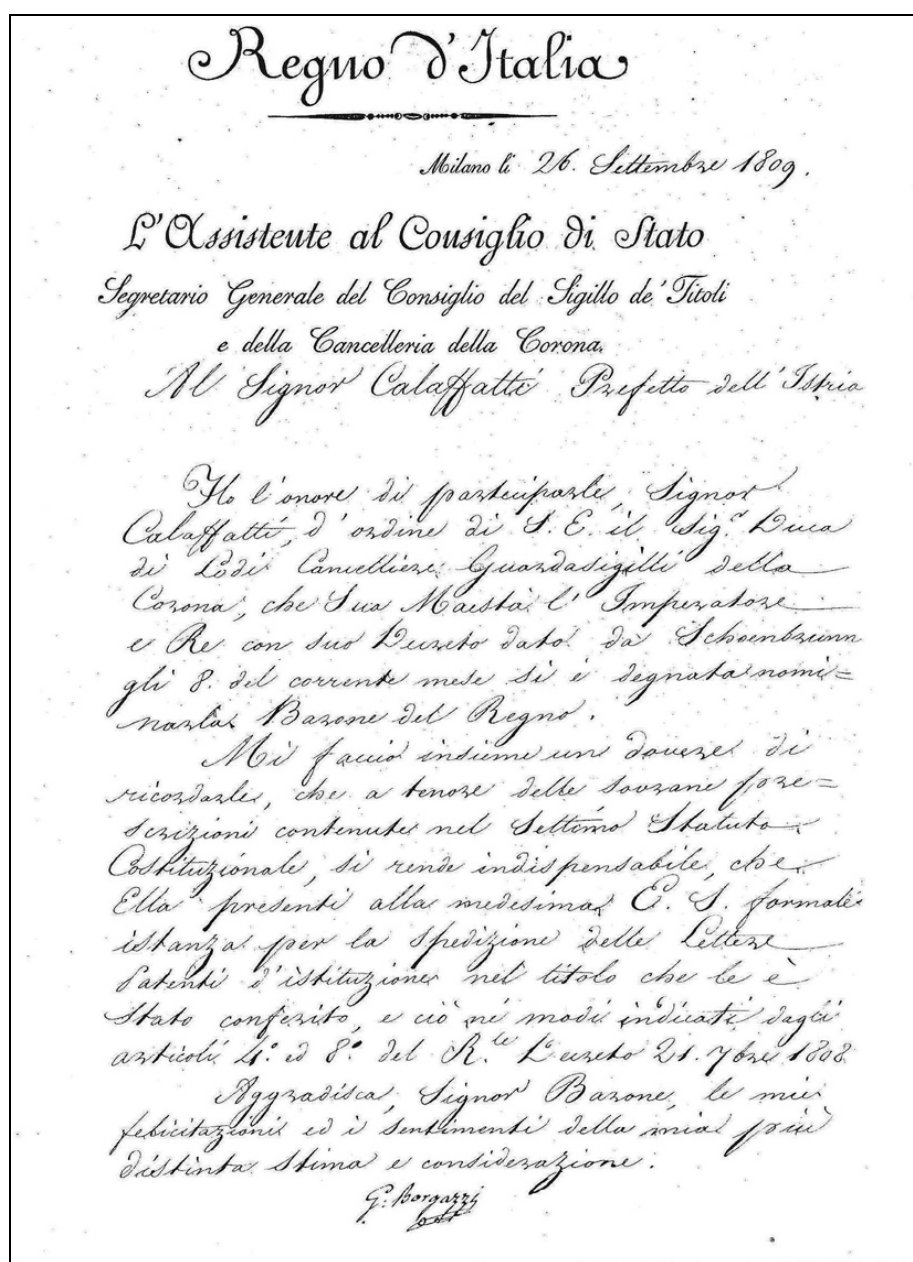 Regno d'Italia
Milano li 26. Settembre 1809.
L'Assistente al Consiglio di Stato
Segretario Generale del Consiglio del Sigillo de' Titoli
e della Cancelleria della Corona.
Al Signor Calaffatti Prefetto dell'Istria
Ho l'onore di parteciparle, Signor
Calaffatti, d'ordine di S. E. il Sig.r Duca
di Lodi Cancelliere Guardasigilli della
Corona, che Sua Maestà l'Imperatore
e Re con suo Decreto dato da Schoenbrunn
gli 8. del corrente mese si è degnata nomi=
narla Barone del Regno.
Mi faccio insieme un dovere di
ricordarle, che a tenore delle sovrane pre=
scrizioni contenute nel Settimo Statuto
Costituzionale, si rende indispensabile, che
Ella presenti alla medesima E. S. formale
istanza per la spedizione delle Lettere
Patenti d'istituzione nel titolo che le è
stato conferito, e ciò ne' modi indicati dagli
articoli 4.° ed 8.° del R.le Decreto 21. 7bre 1808
Aggradisca, Signor Barone, le mie
felicitazioni ed i sentimenti della mia più
distinta stima e considerazione.
G. Borgazzi